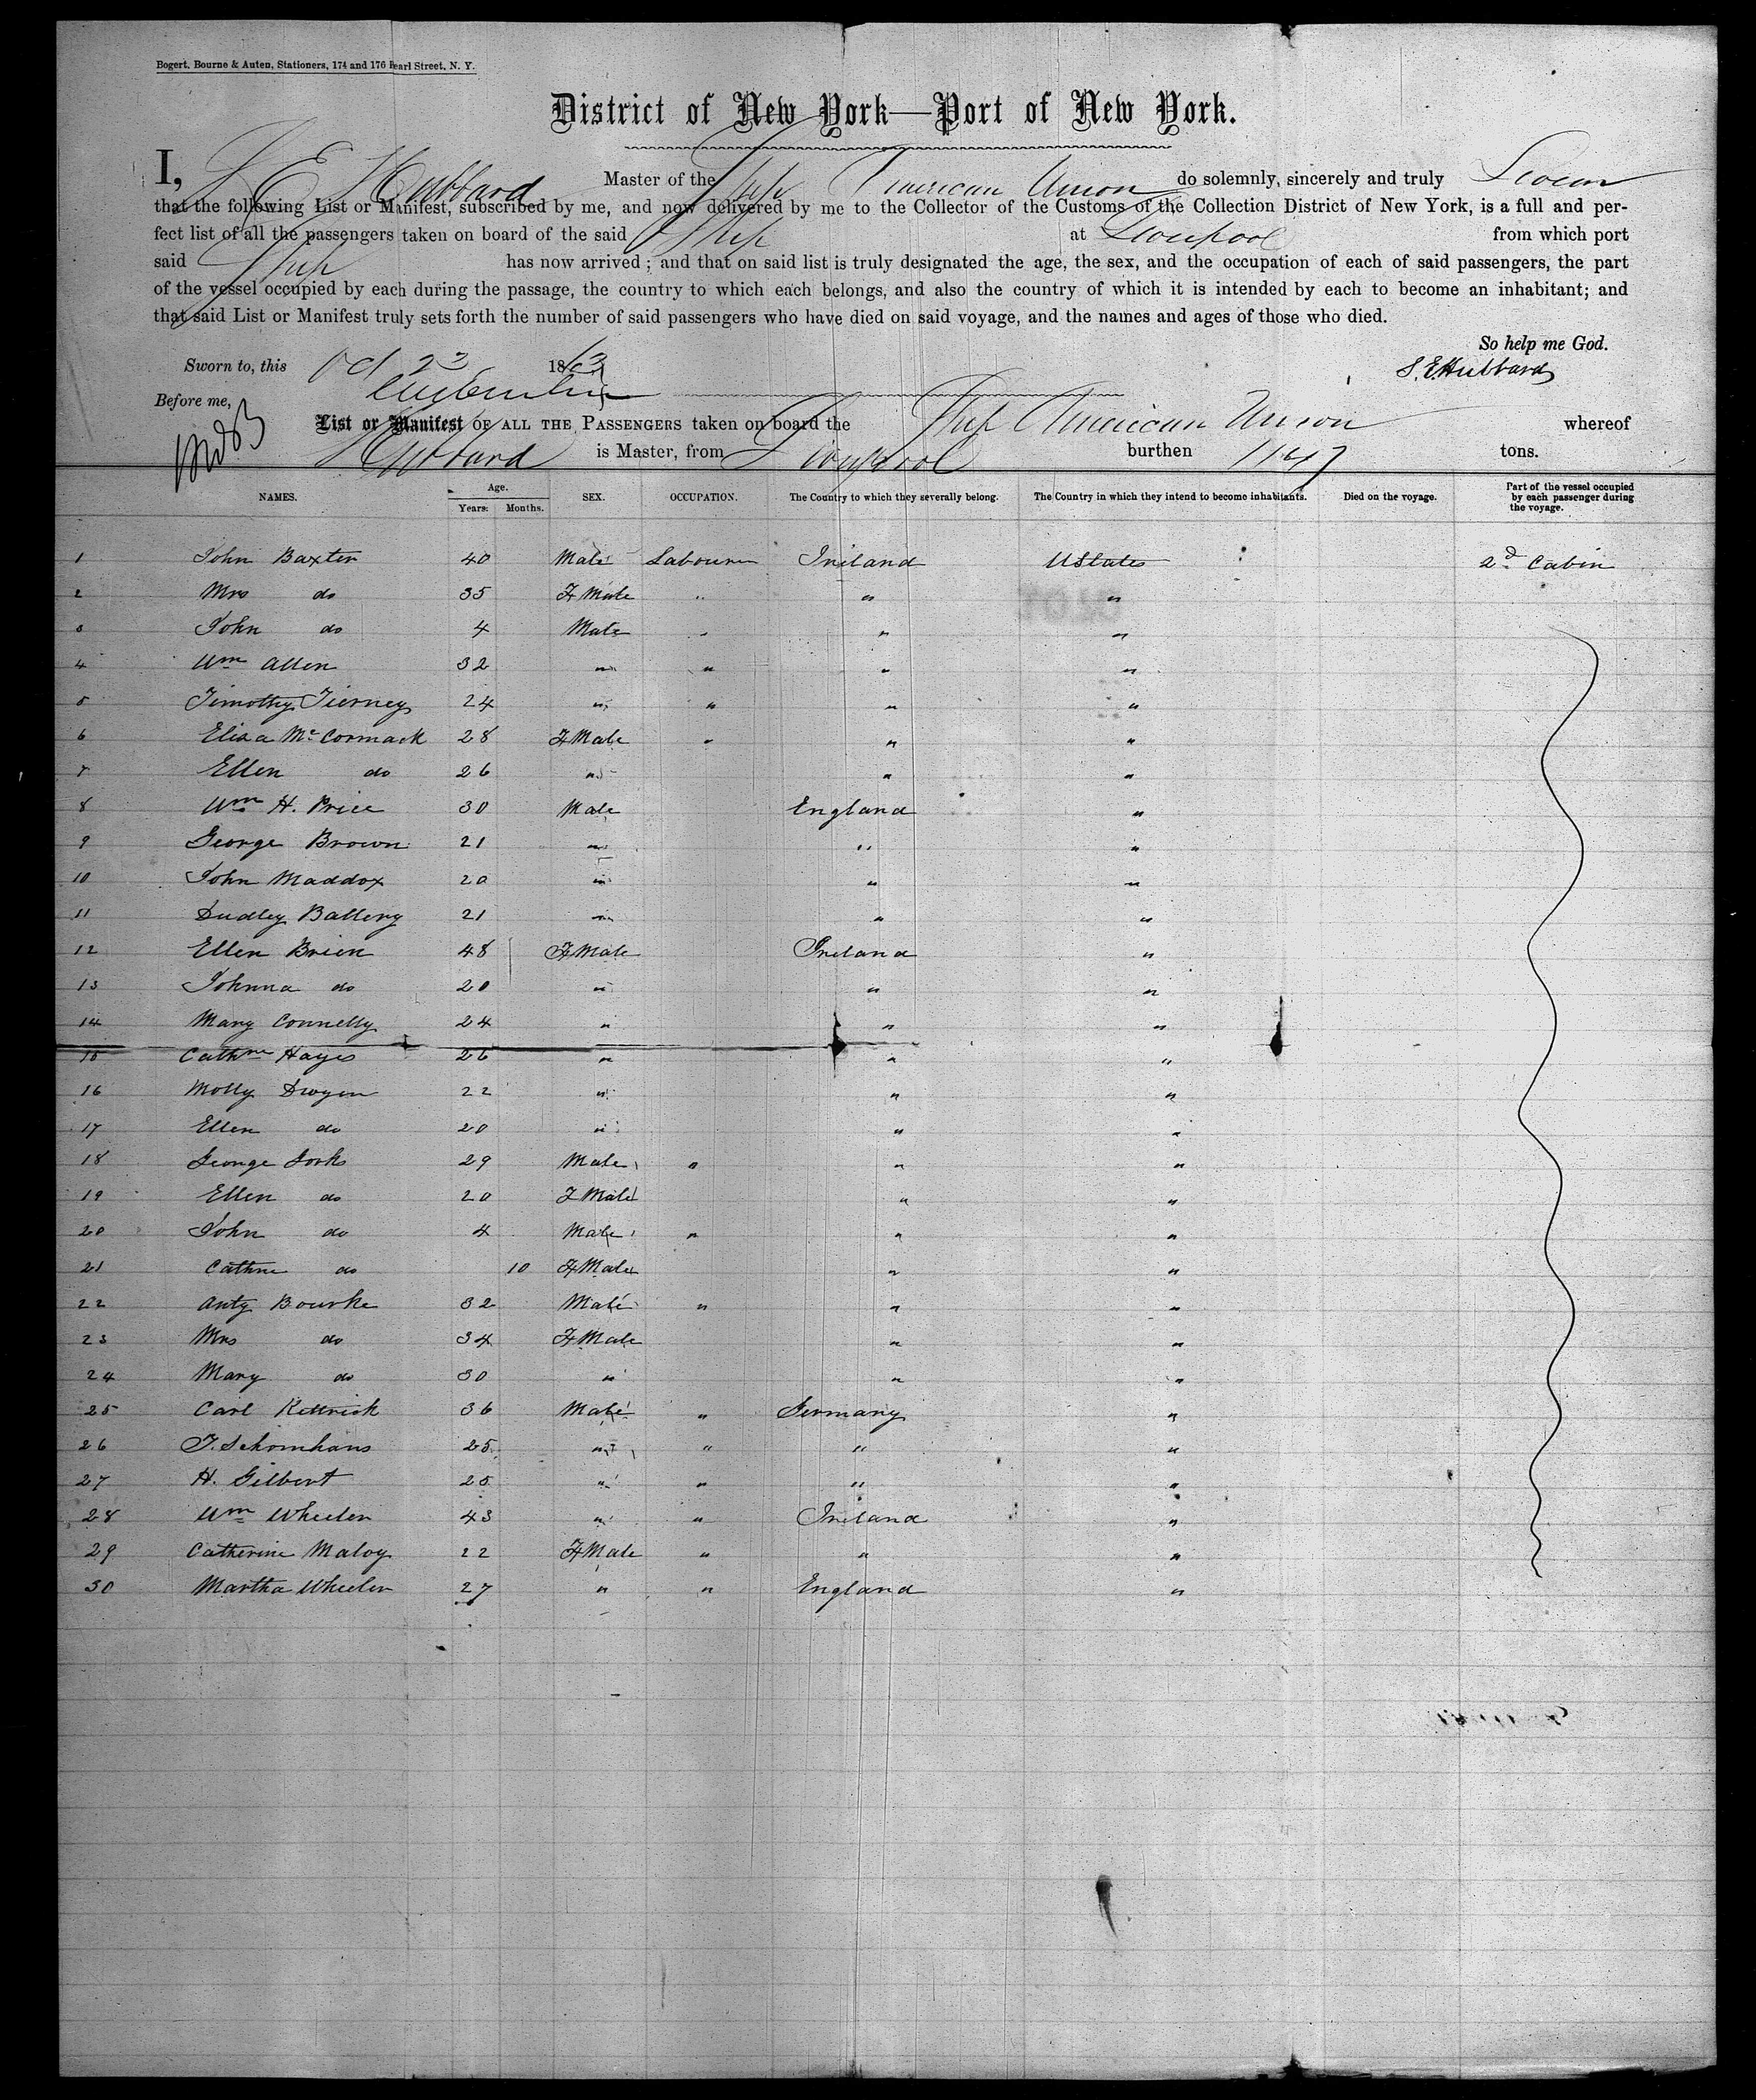 Bogert, Bourne & Auten, Stationers, 174 and 176 Pearl Street, N. Y.
District of New York—Port of New York.
I, S E Hubbard Master of the Ship American Union do solemnly, sincerely and truly Swear
that the following List or Manifest, subscribed by me, and now delivered by me to the Collector of the Customs of the Collection District of New York, is a full and per-
fect list of all the passengers taken on board of the said Ship at Liverpool from which port
said Ship has now arrived; and that on said list is truly designated the age, the sex, and the occupation of each of said passengers, the part
of the vessel occupied by each during the passage, the country to which each belongs, and also the country of which it is intended by each to become an inhabitant; and
that said List or Manifest truly sets forth the number of said passengers who have died on said voyage, and the names and ages of those who died.
So help me God.
Sworn to, this Oct 23 1863 S. E. Hubbard
Before me,
List or Manifest OF ALL THE PASSENGERS taken on board the Ship American Union whereof
Hubbard is Master, from Liverpool burthen 1147 tons.
NAMES. Age. Years. Months. SEX. OCCUPATION. The Country to which they severally belong. The Country in which they intend to become inhabitants. Died on the voyage. Part of the vessel occupied by each passenger during the voyage.
1 John Baxter 40 Male Labourer Ireland UStates 2d. Cabin
2 Mrs do 35 FMale " " "
3 John do 4 Male " " "
4 Wm Allen 32 " " " "
5 Timothy Tierney 24 " " " "
6 Eliza McCormack 28 FMale " " "
7 Ellen do 26 " " "
8 Wm H. Price 30 Male England "
9 George Brown 21 " " "
10 John Maddox 20 " " "
11 Dudley Battery 21 " " "
12 Ellen Brien 48 FMale Ireland "
13 Johnna do 20 " " "
14 Mary Connelly 24 " " "
15 Cathne Hayes 26 " " "
16 Molly Dwyer 22 " " "
17 Ellen do 20 " " "
18 George 29 Male " " "
19 Ellen do 20 FMale " "
20 John do 4 Male " " "
21 Cathne do 10 FMale " "
22 Anty Bourke 32 Male " " "
23 Mrs do 34 FMale " "
24 Mary do 30 " " "
25 Carl Kettrick 36 Male " Germany "
26 J. Schomhans 25 " " " "
27 H. Gilbert 25 " " " "
28 Wm Wheeler 43 " " Ireland "
29 Catherine Maloy 22 FMale " " "
30 Martha Wheeler 27 " " England "